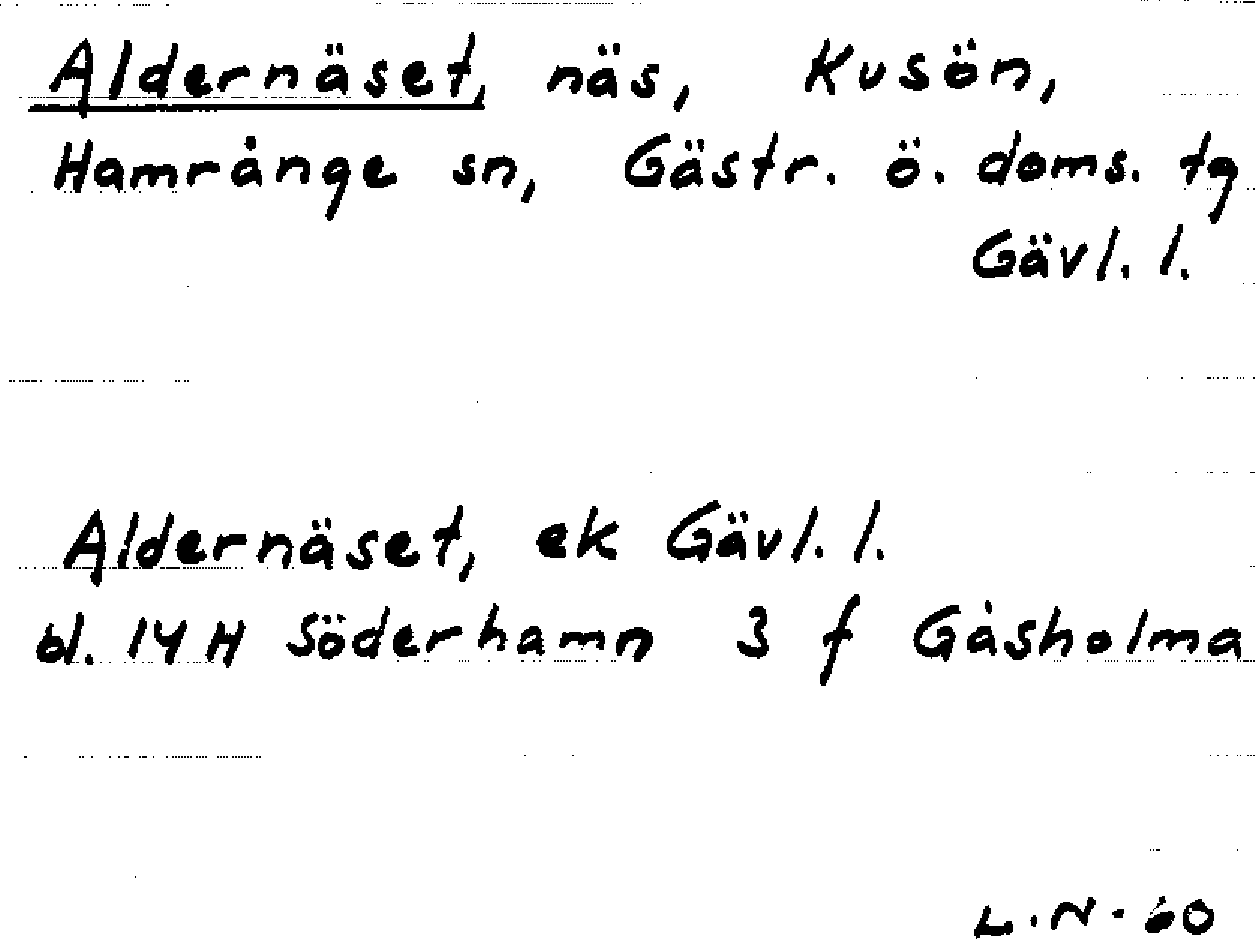 Aldernäset, näs, Kusön,
Hamrånge sn, Gästr. ö. doms. tg
Gävl. l.
Aldernäset, ek Gävl. l.
bl. 14 H Söderhamn 3 f Gåsholma
L.N-60